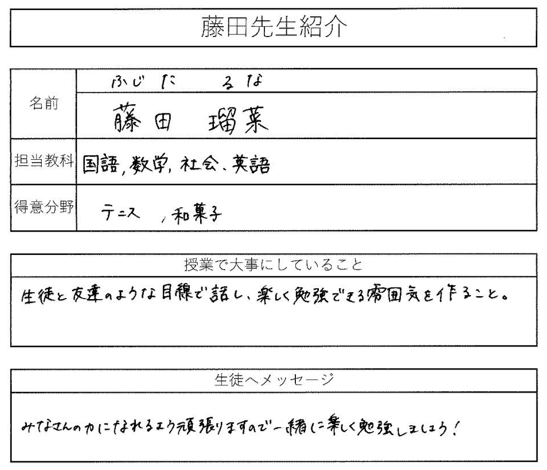 藤田先生紹介
ふじた るな
名前
藤田 瑠菜
担当教科 国語,数学,社会、英語
得意分野 テニス ,和菓子
授業で大事にしていること
生徒と友達のような目線で話し、楽しく勉強できる雰囲気を作ること。
生徒へメッセージ
みなさんの力になれるよう頑張りますので一緒に楽しく勉強しましょう!